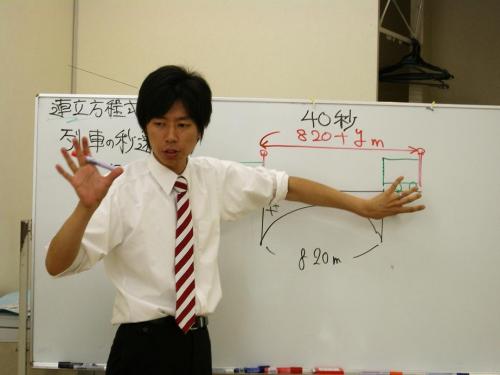 連立方程式
列車の秒速
40秒
820+ym
820m